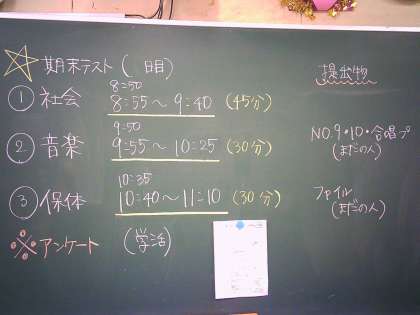 ☆期末テスト( 日目)
提出物
8:50
①社会 8:55～9:40 (45分)
9:50
②音楽 9:55～10:25 (30分)
NO.9・10・合唱プ
(まだの人)
10:35
③保体 10:40～11:10 (30分)
ファイル
(まだの人)
※アンケート (学活)